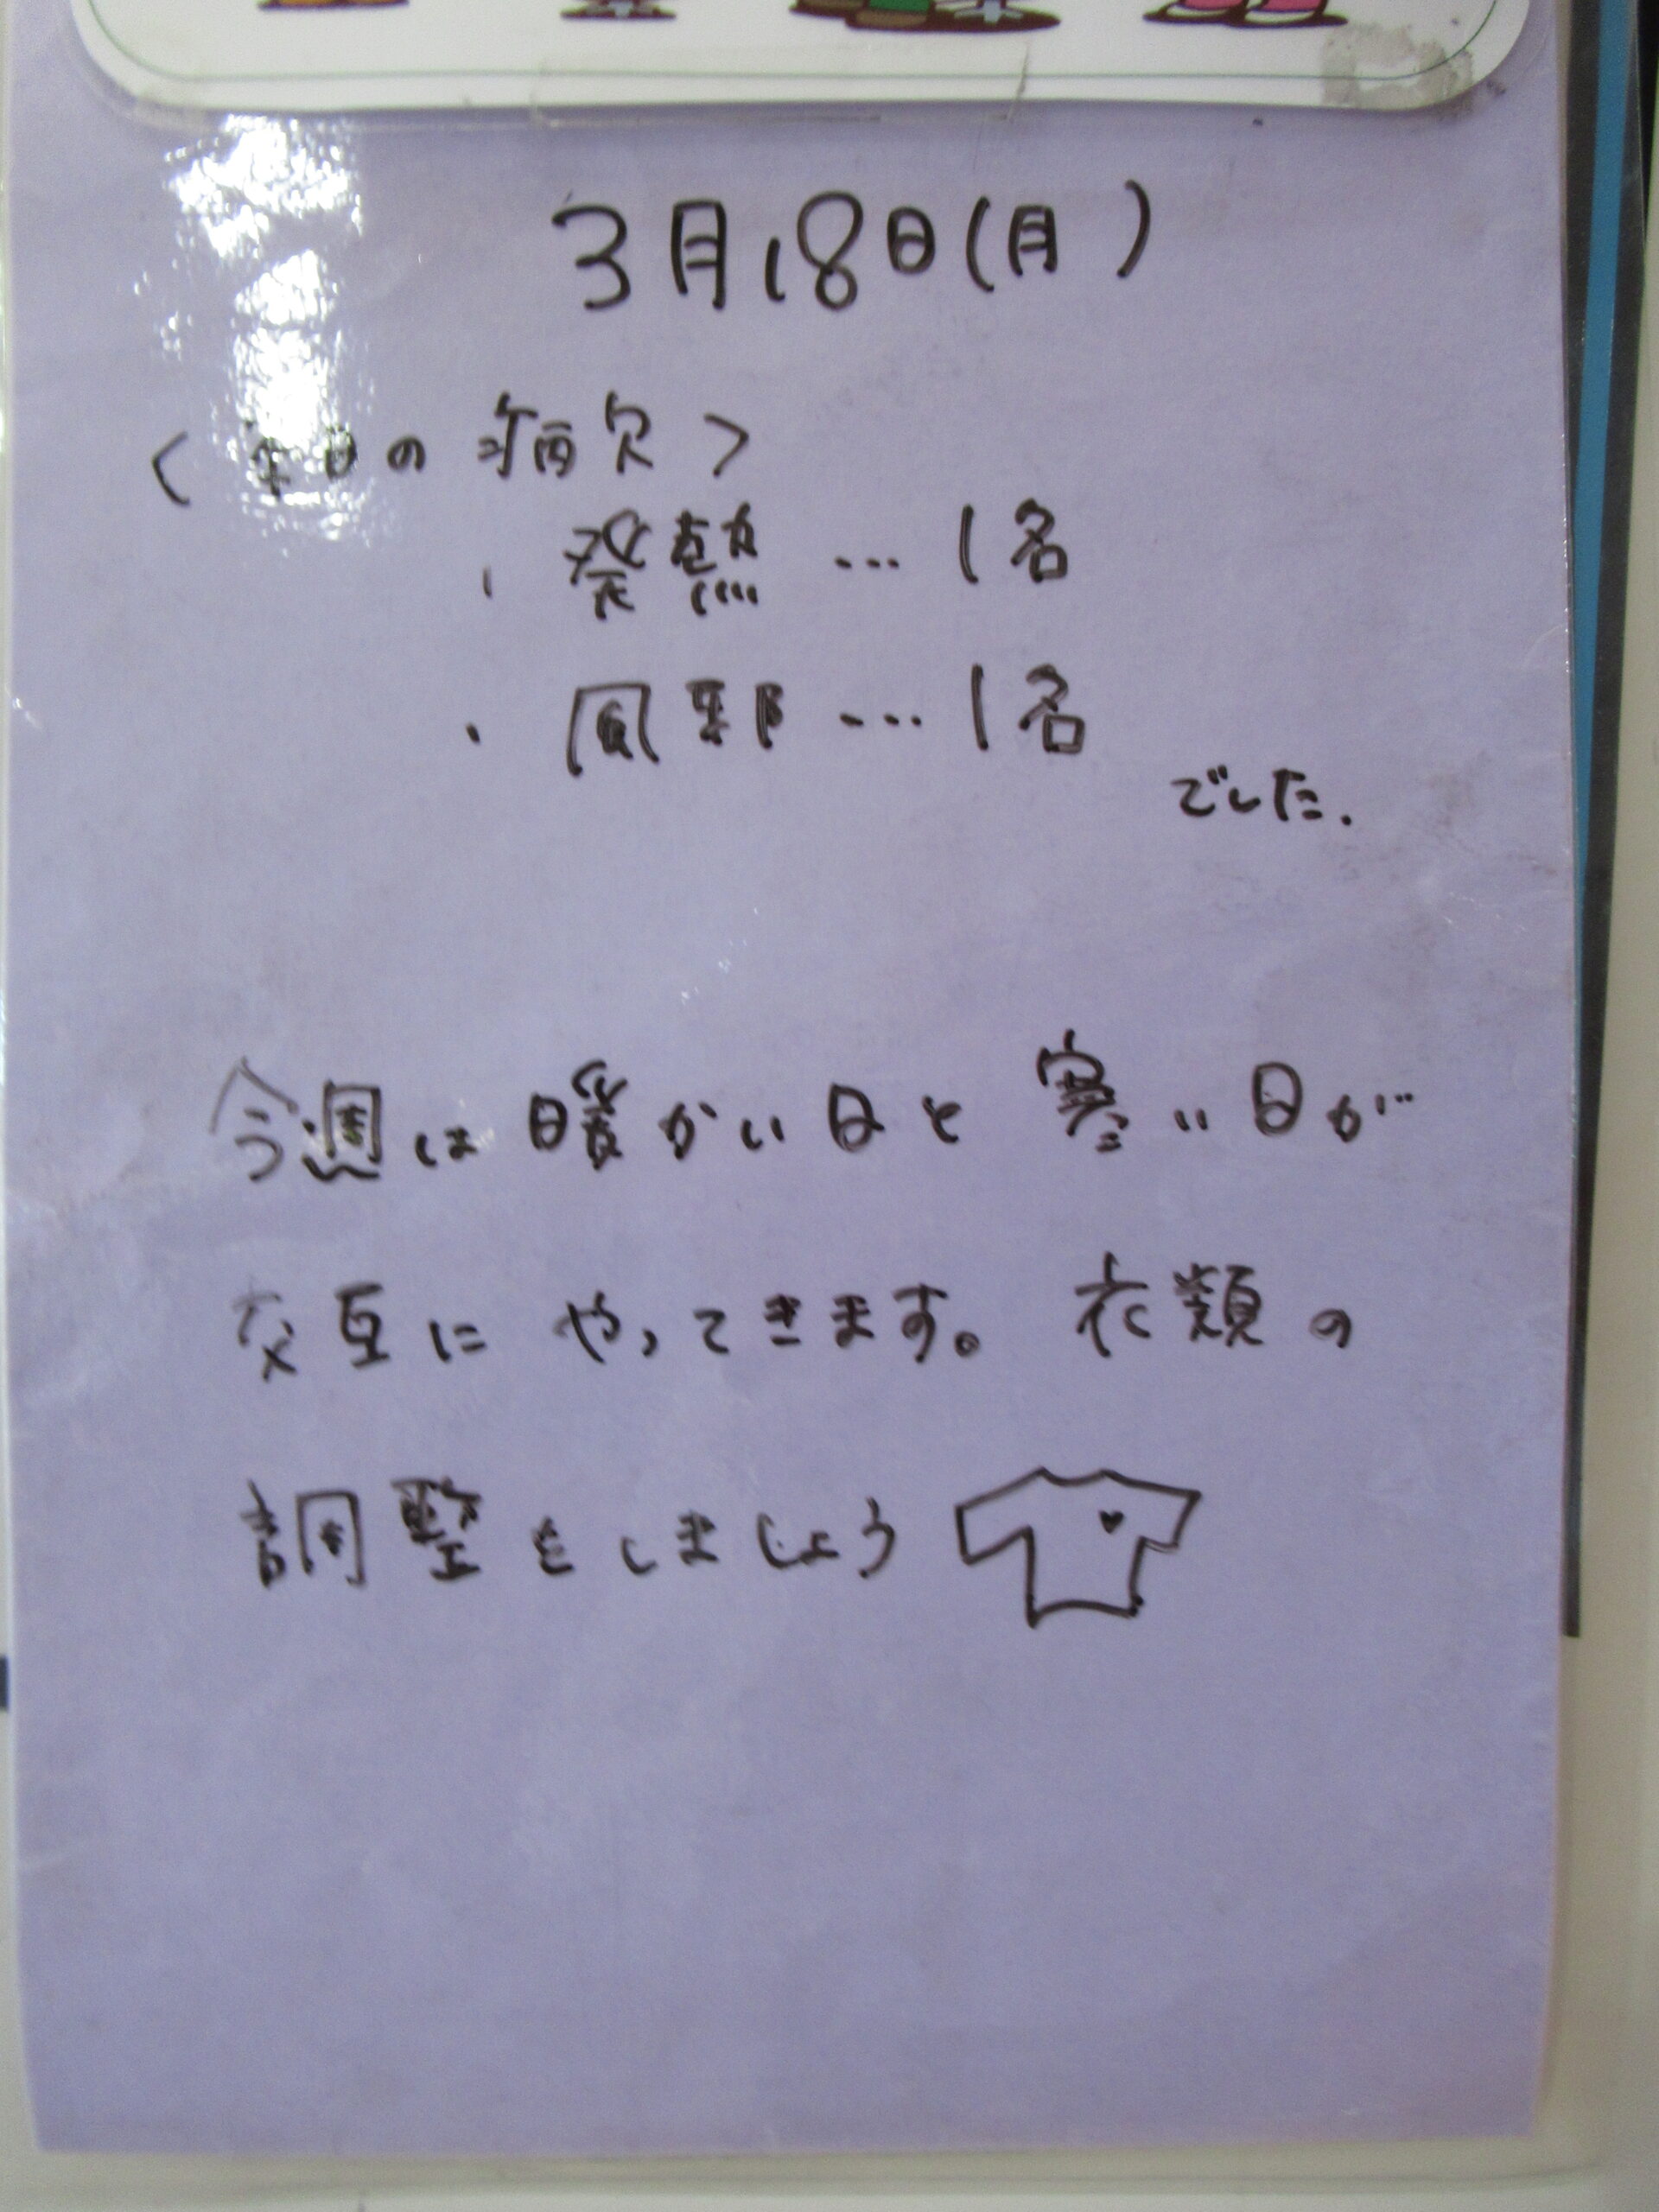 3月18日(月)
<本日の病欠>
・発熱…1名
・風邪…1名
でした.
今週は暖かい日と寒い日が
交互にやってきます。衣類の
調整をしましょう